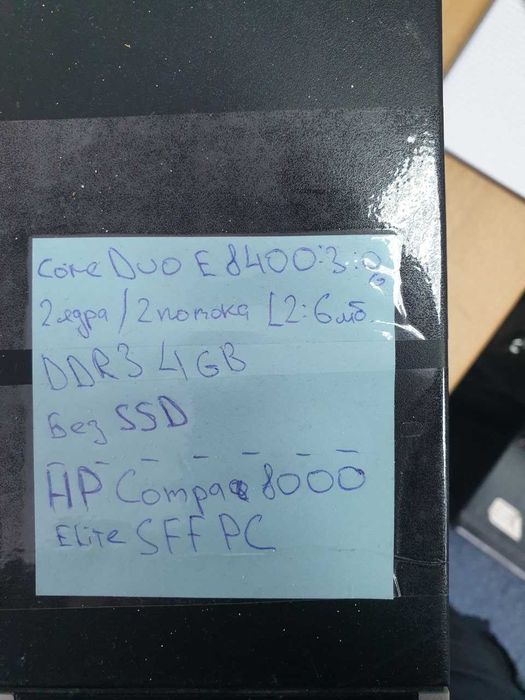 Core Duo E8400:3.0
G
2 ядра / 2 потока L2:6мб
DDR3 4GB
Без SSD
HP Compaq 8000
Elite SFF PC